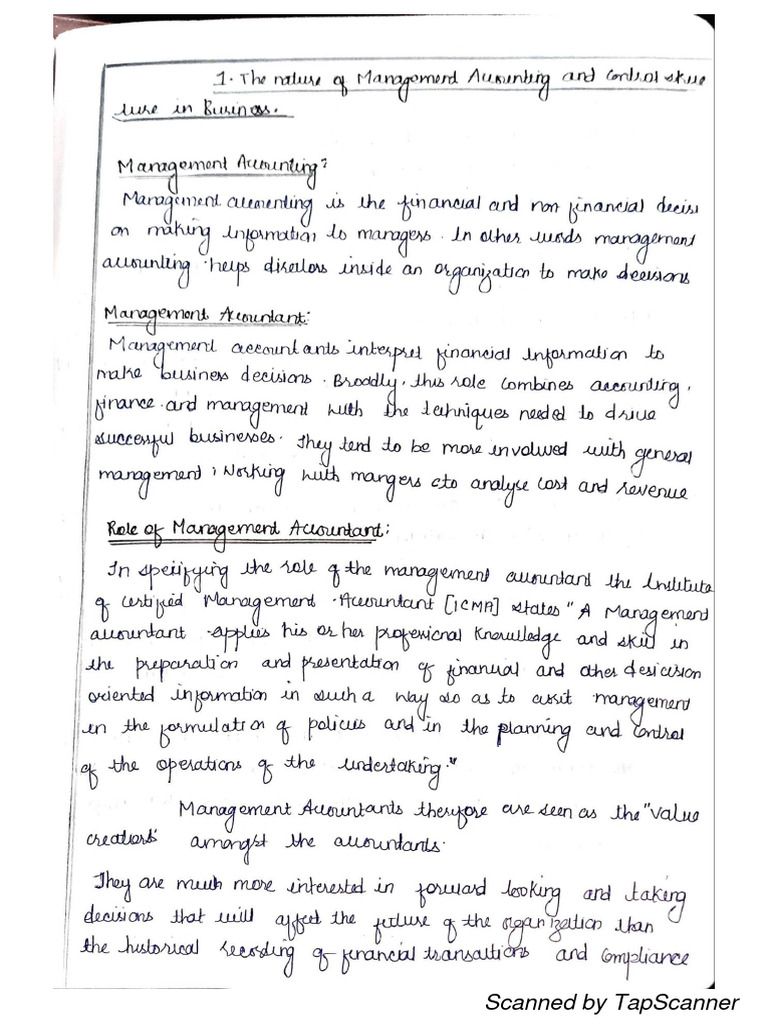 1. The nature of Management Accounting and control struc
ture in Business.
Management Accounting:
Management accounting is the financial and non financial decisi
on making information to managers. In other words management
accounting helps directors inside an organization to make decisions
Management Accountant:
Management accountants interpret financial information to
make business decisions. Broadly, this role combines accounting,
finance and management with the techniques needed to drive
successful businesses. They tend to be more involved with general
management; Working with mangers to analyse cost and revenue
Role of Management Accountant:
In specifying the role of the management accountant the Institute
of certified Management Accountant [ICMA] states "A Management
accountant applies his or her professional knowledge and skill in
the preparation and presentation of financial and other desicision
oriented information in such a way so as to assit management
in the formulation of policies and in the planning and control
of the operations of the undertaking."
Management Accountants therefore are seen as the "value
creators" amongst the accountants.
They are much more interested in forward looking and taking
decisions that will affect the future of the organization than
the historical recording of financial transactions and compliance
Scanned by TapScanner